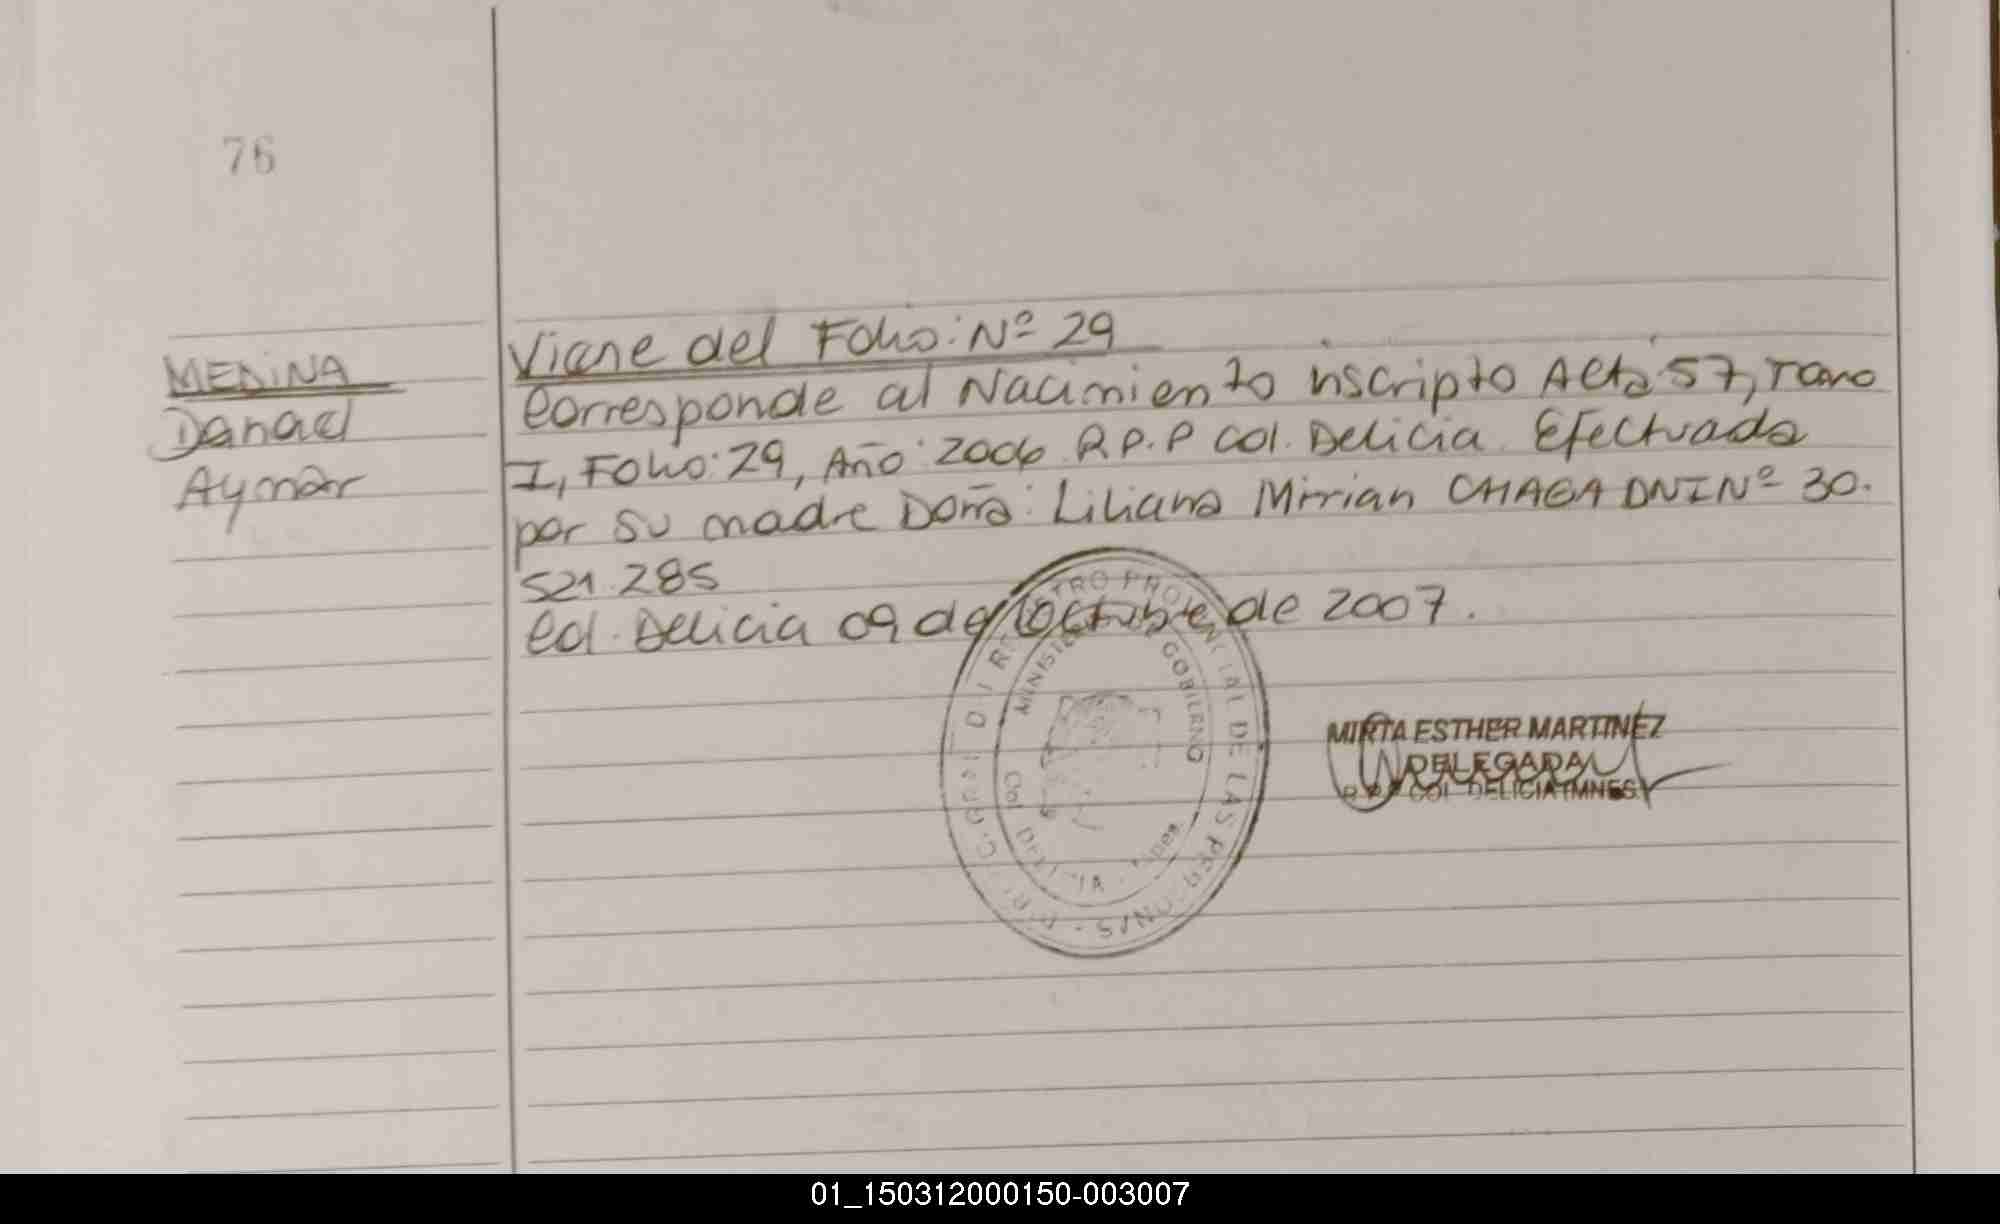 76
MEDINA
Danael
Aymar
Viene del Folio: Nº 29
Corresponde al Nacimiento inscripto Acta 57, Tomo
I, Folio: 29, Año: 2006 R.P.P Col. Delicia. Efectuada
por su madre Doña: Liliana Mirian CHAGA DNI Nº 30.
521.285
Col. Delicia 09 de Octubre de 2007.
PROVINCIAL DE LAS PERSONAS
GOBIERNO
Col. DELICIA
MIRTA ESTHER MARTINEZ
DELEGADA
R.P.P COL DELICIA (MNES)
01_150312000150-003007